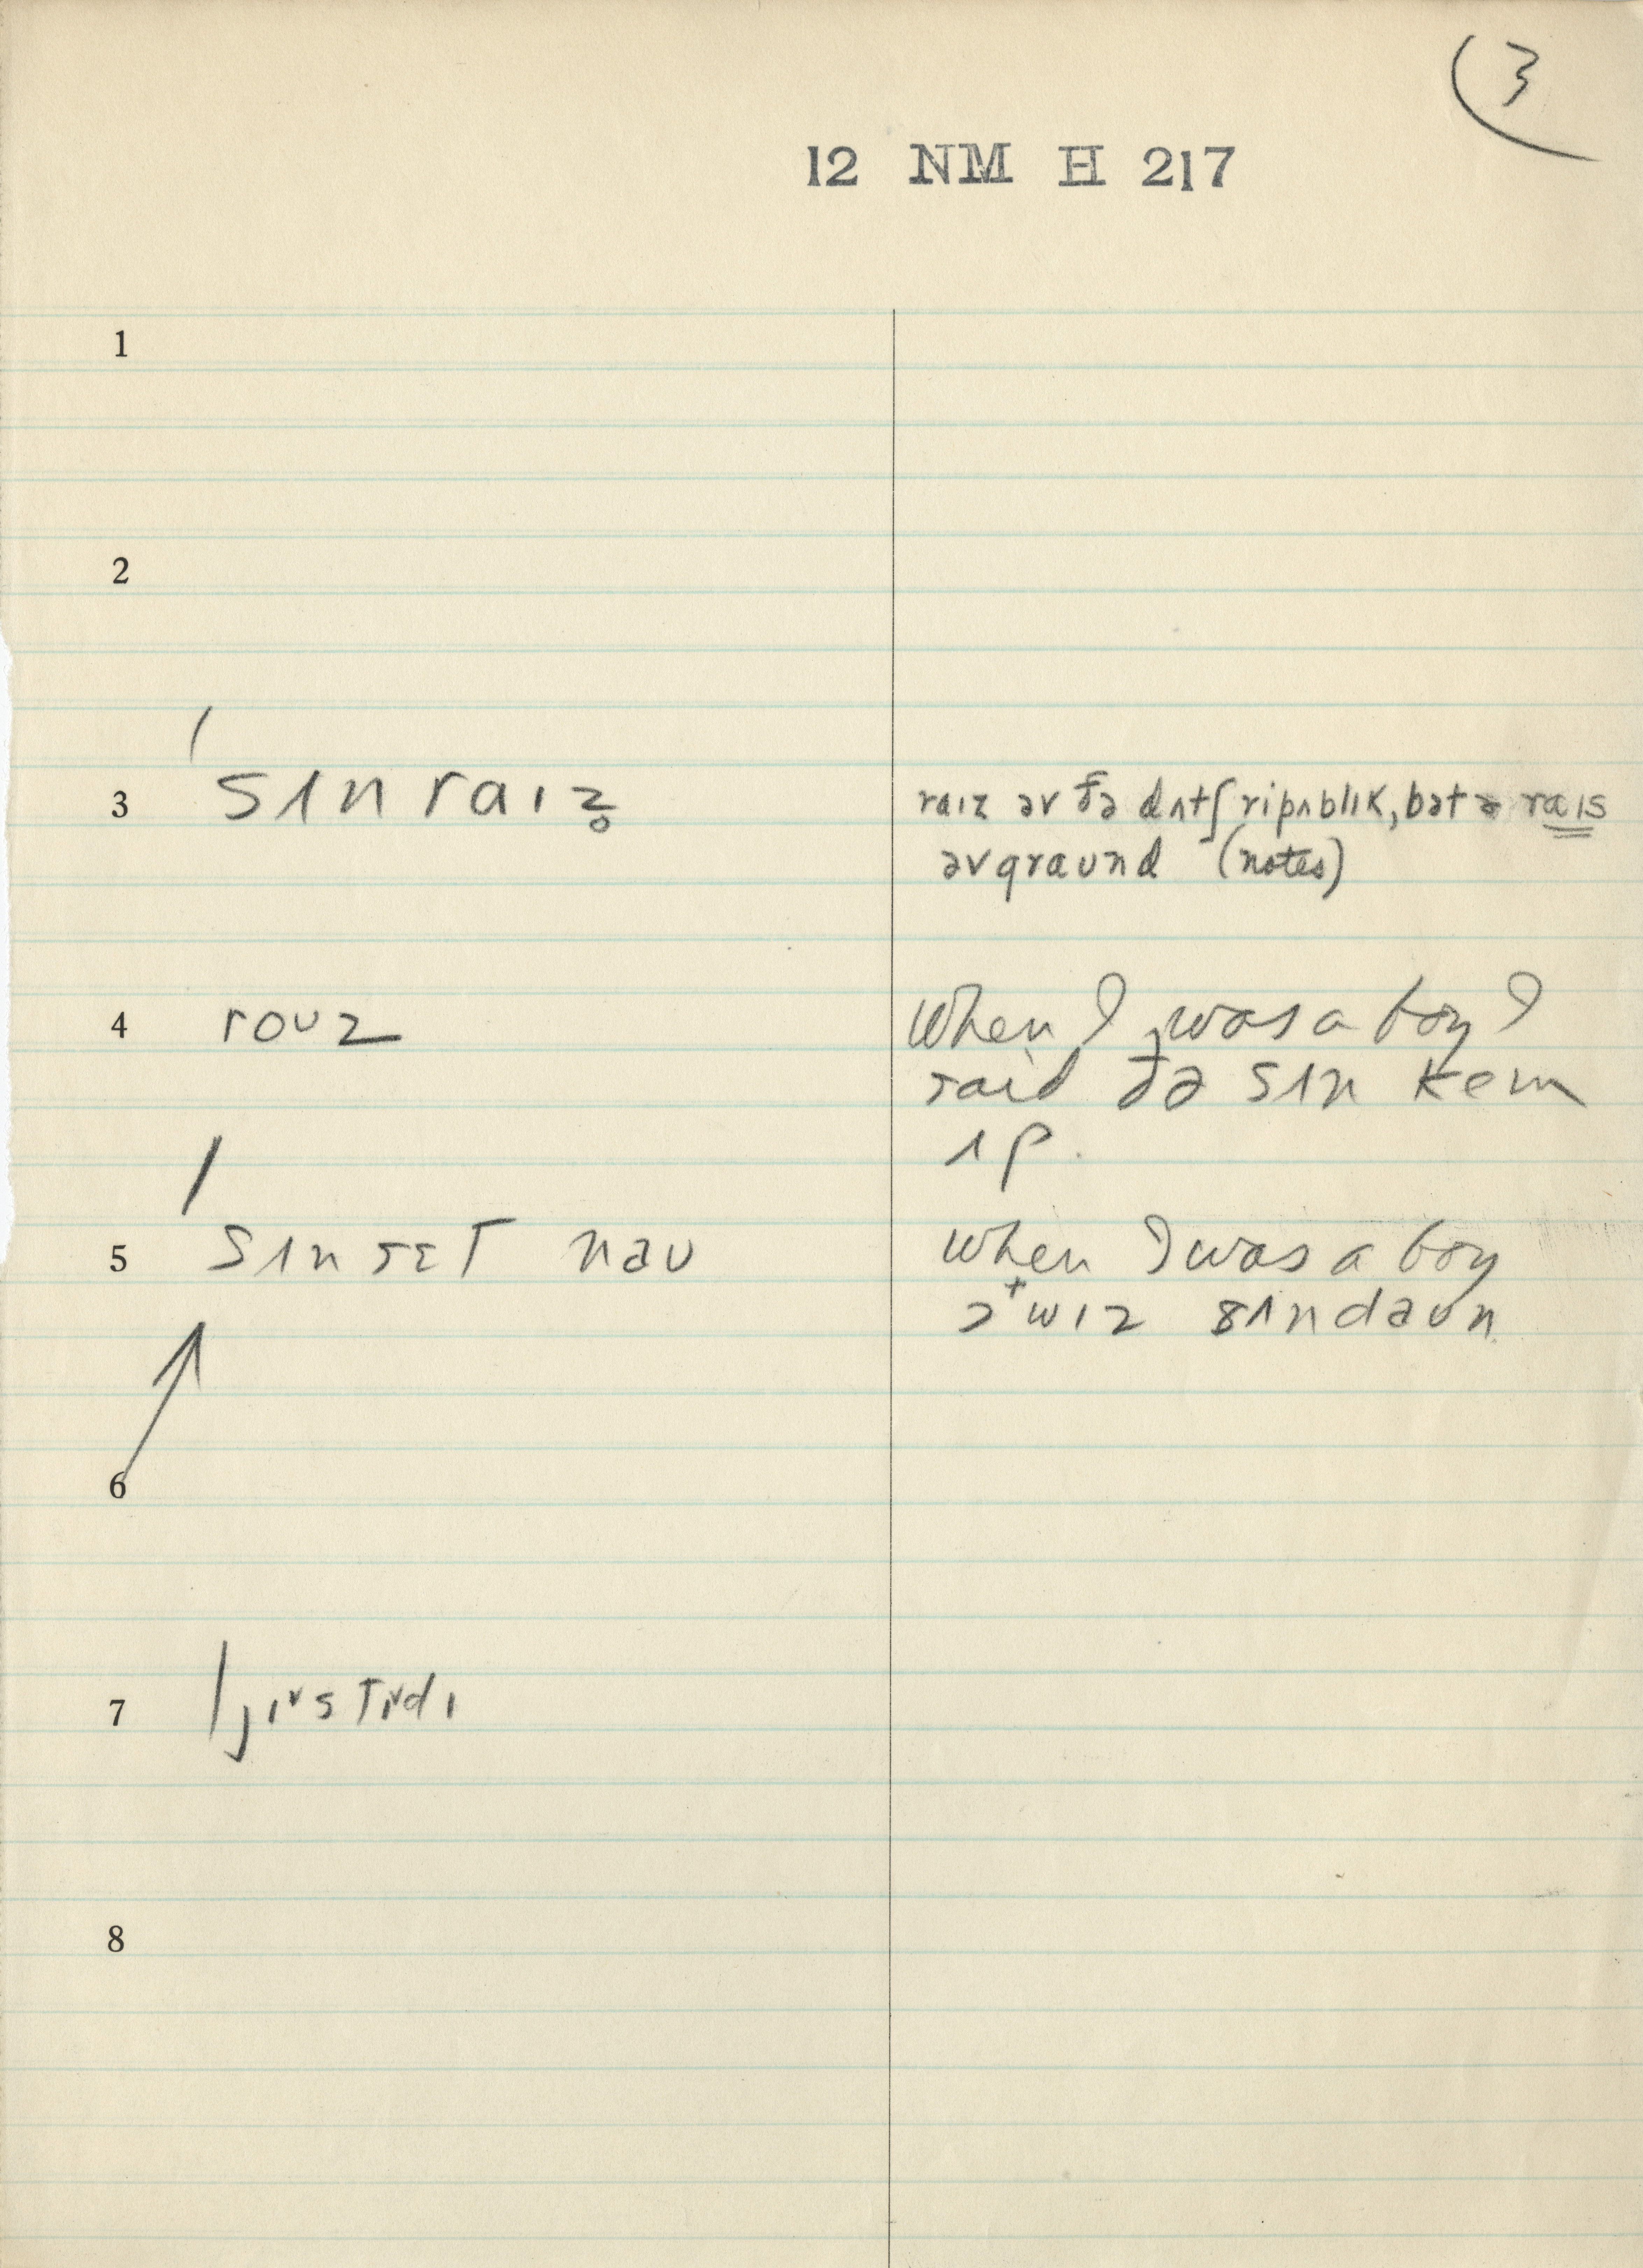 3
12 NM H 217
1
2
3 ˈsʌnraɪz̥ raɪz əv ðə dʌtʃ ripʌblɪk, bət ə raɪs
əv graʊnd (notes)
4 roʊz When I was a boy I
said ðə sʌn keɪm
ʌp.
5 ˈsʌnsɛt naʊ When I was a boy
sʌndaʊn
6
7 ˈjɪɚstɚdɪ
8